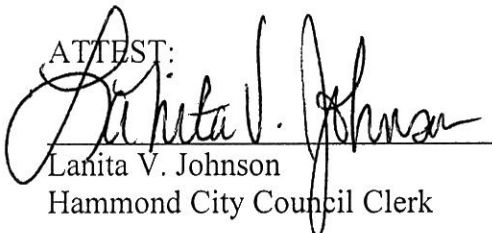 ATTEST:
Lanita V. Johnson
Lanita V. Johnson
Hammond City Council Clerk